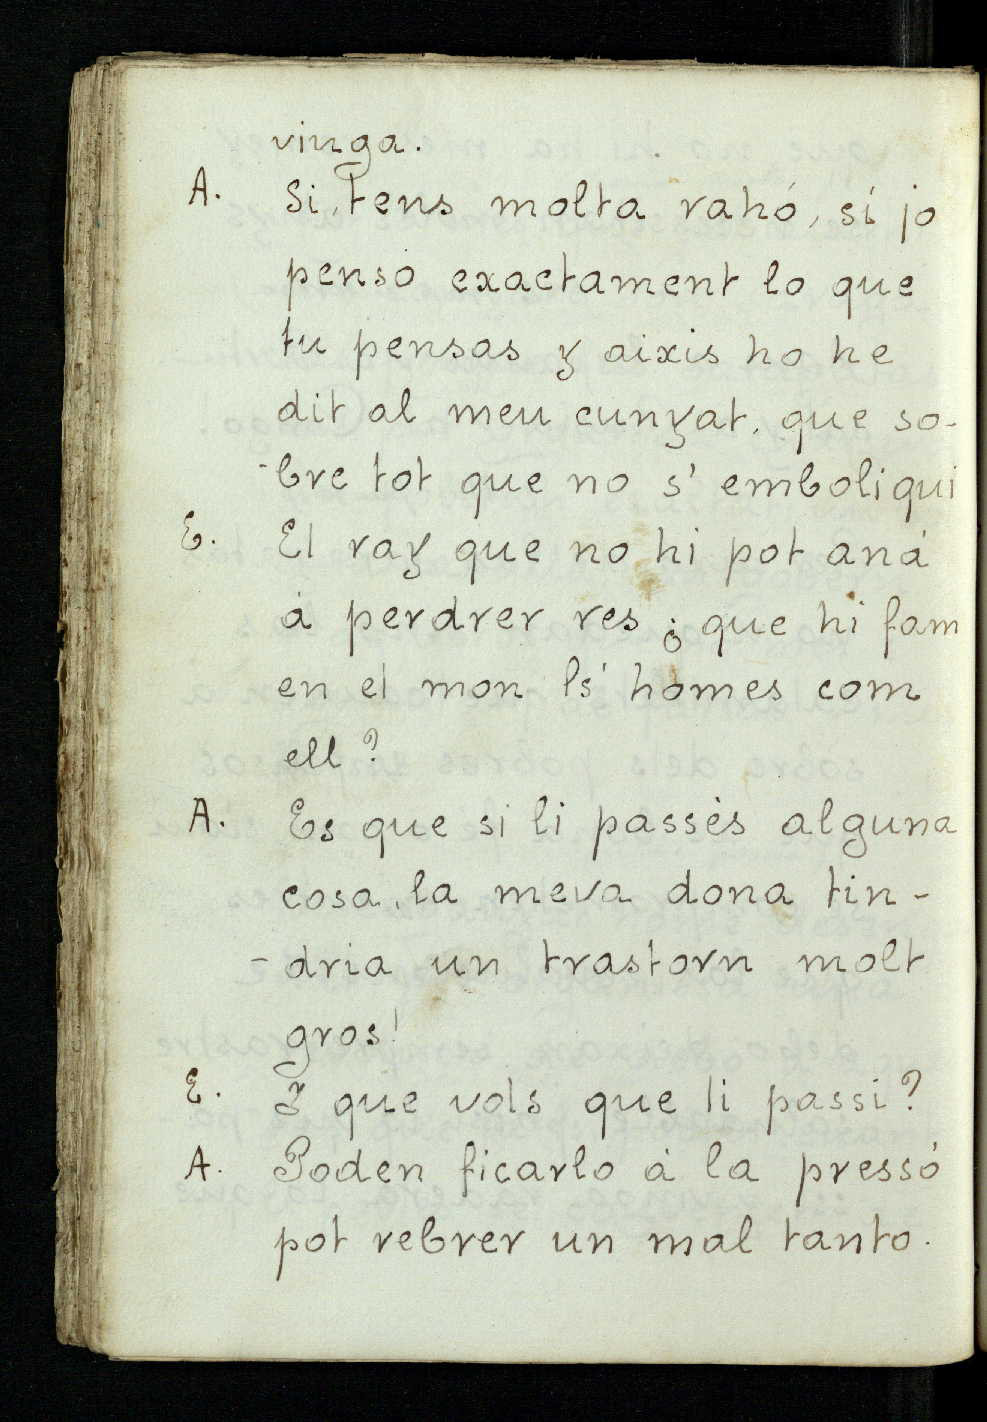 vinga.
A. Si, tens molta rahó, sí jo
penso exactament lo que
tu pensas y aixis ho he
dit al meu cunyat, que so-
-bre tot que no s' emboliqui
E. El ray que no hi pot aná
á perdrer res ¿que hi fam
en el mon ls' homes com
ell?
A. Es que si li passés alguna
cosa, la meva dona tin-
-dria un trastorn molt
gros!
E. Y que vols que li passi?
A. Poden ficarlo á la pressó
pot rebrer un mal tanto.